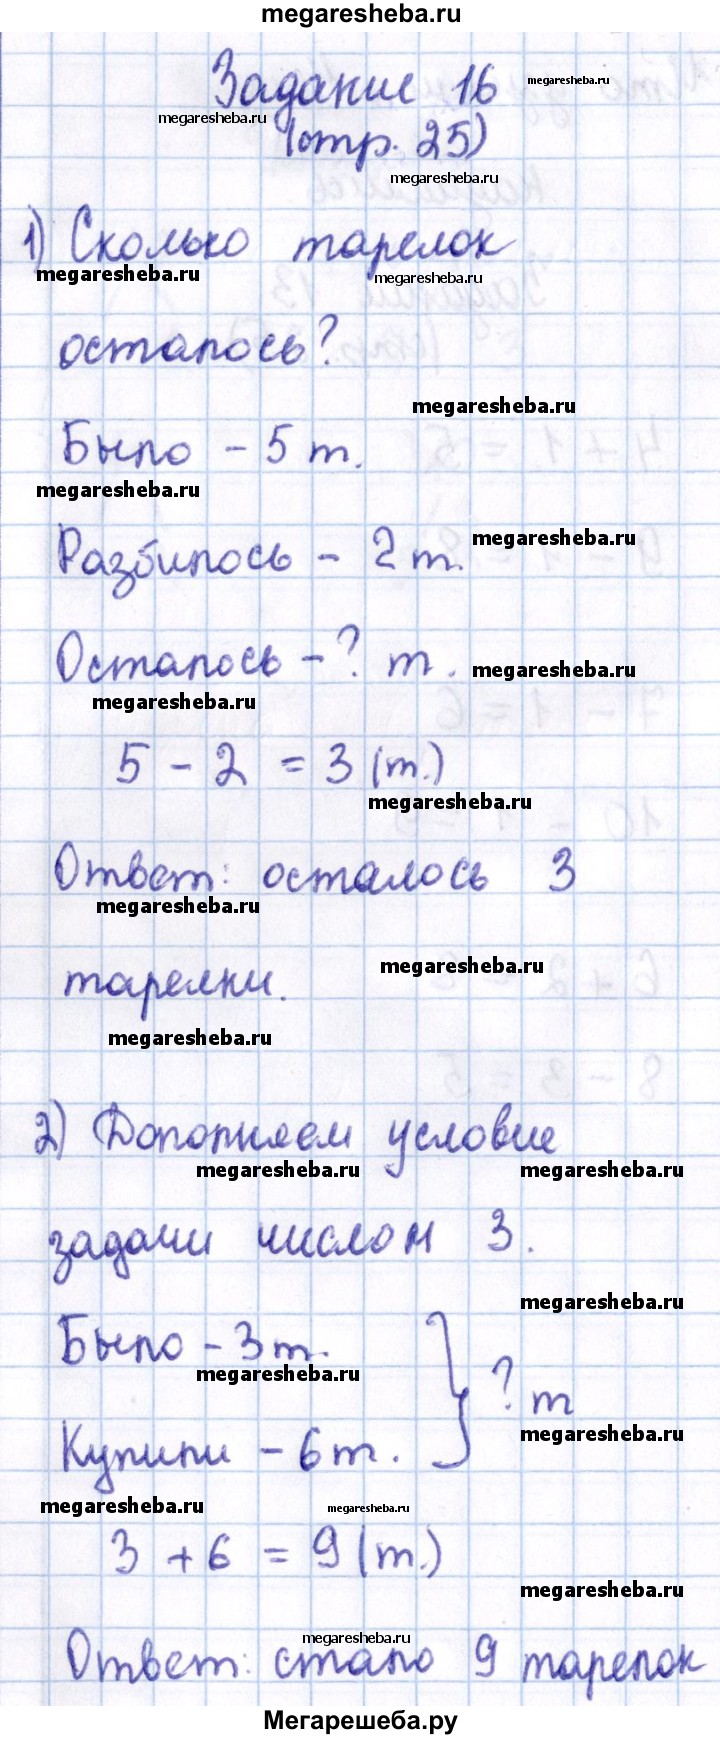 megaresheba.ru
Задание 16
megaresheba.ru
megaresheba.ru
(стр. 25)
megaresheba.ru
1) Сколько тарелок
megaresheba.ru
megaresheba.ru
осталось?
megaresheba.ru
Было – 5 т.
megaresheba.ru
megaresheba.ru
Разбилось – 2 т.
Осталось – ? т.
megaresheba.ru
megaresheba.ru
5 – 2 = 3 (т.)
megaresheba.ru
Ответ: осталось 3
megaresheba.ru
тарелки.
megaresheba.ru
megaresheba.ru
2) Дополняем условие
megaresheba.ru
megaresheba.ru
задачи числом 3.
megaresheba.ru
Было – 3 т.
megaresheba.ru
} ? т
megaresheba.ru
Купили – 6 т.
megaresheba.ru
megaresheba.ru
3 + 6 = 9 (т.)
megaresheba.ru
megaresheba.ru
Ответ: стало 9 тарелок
Мегарешеба.ру